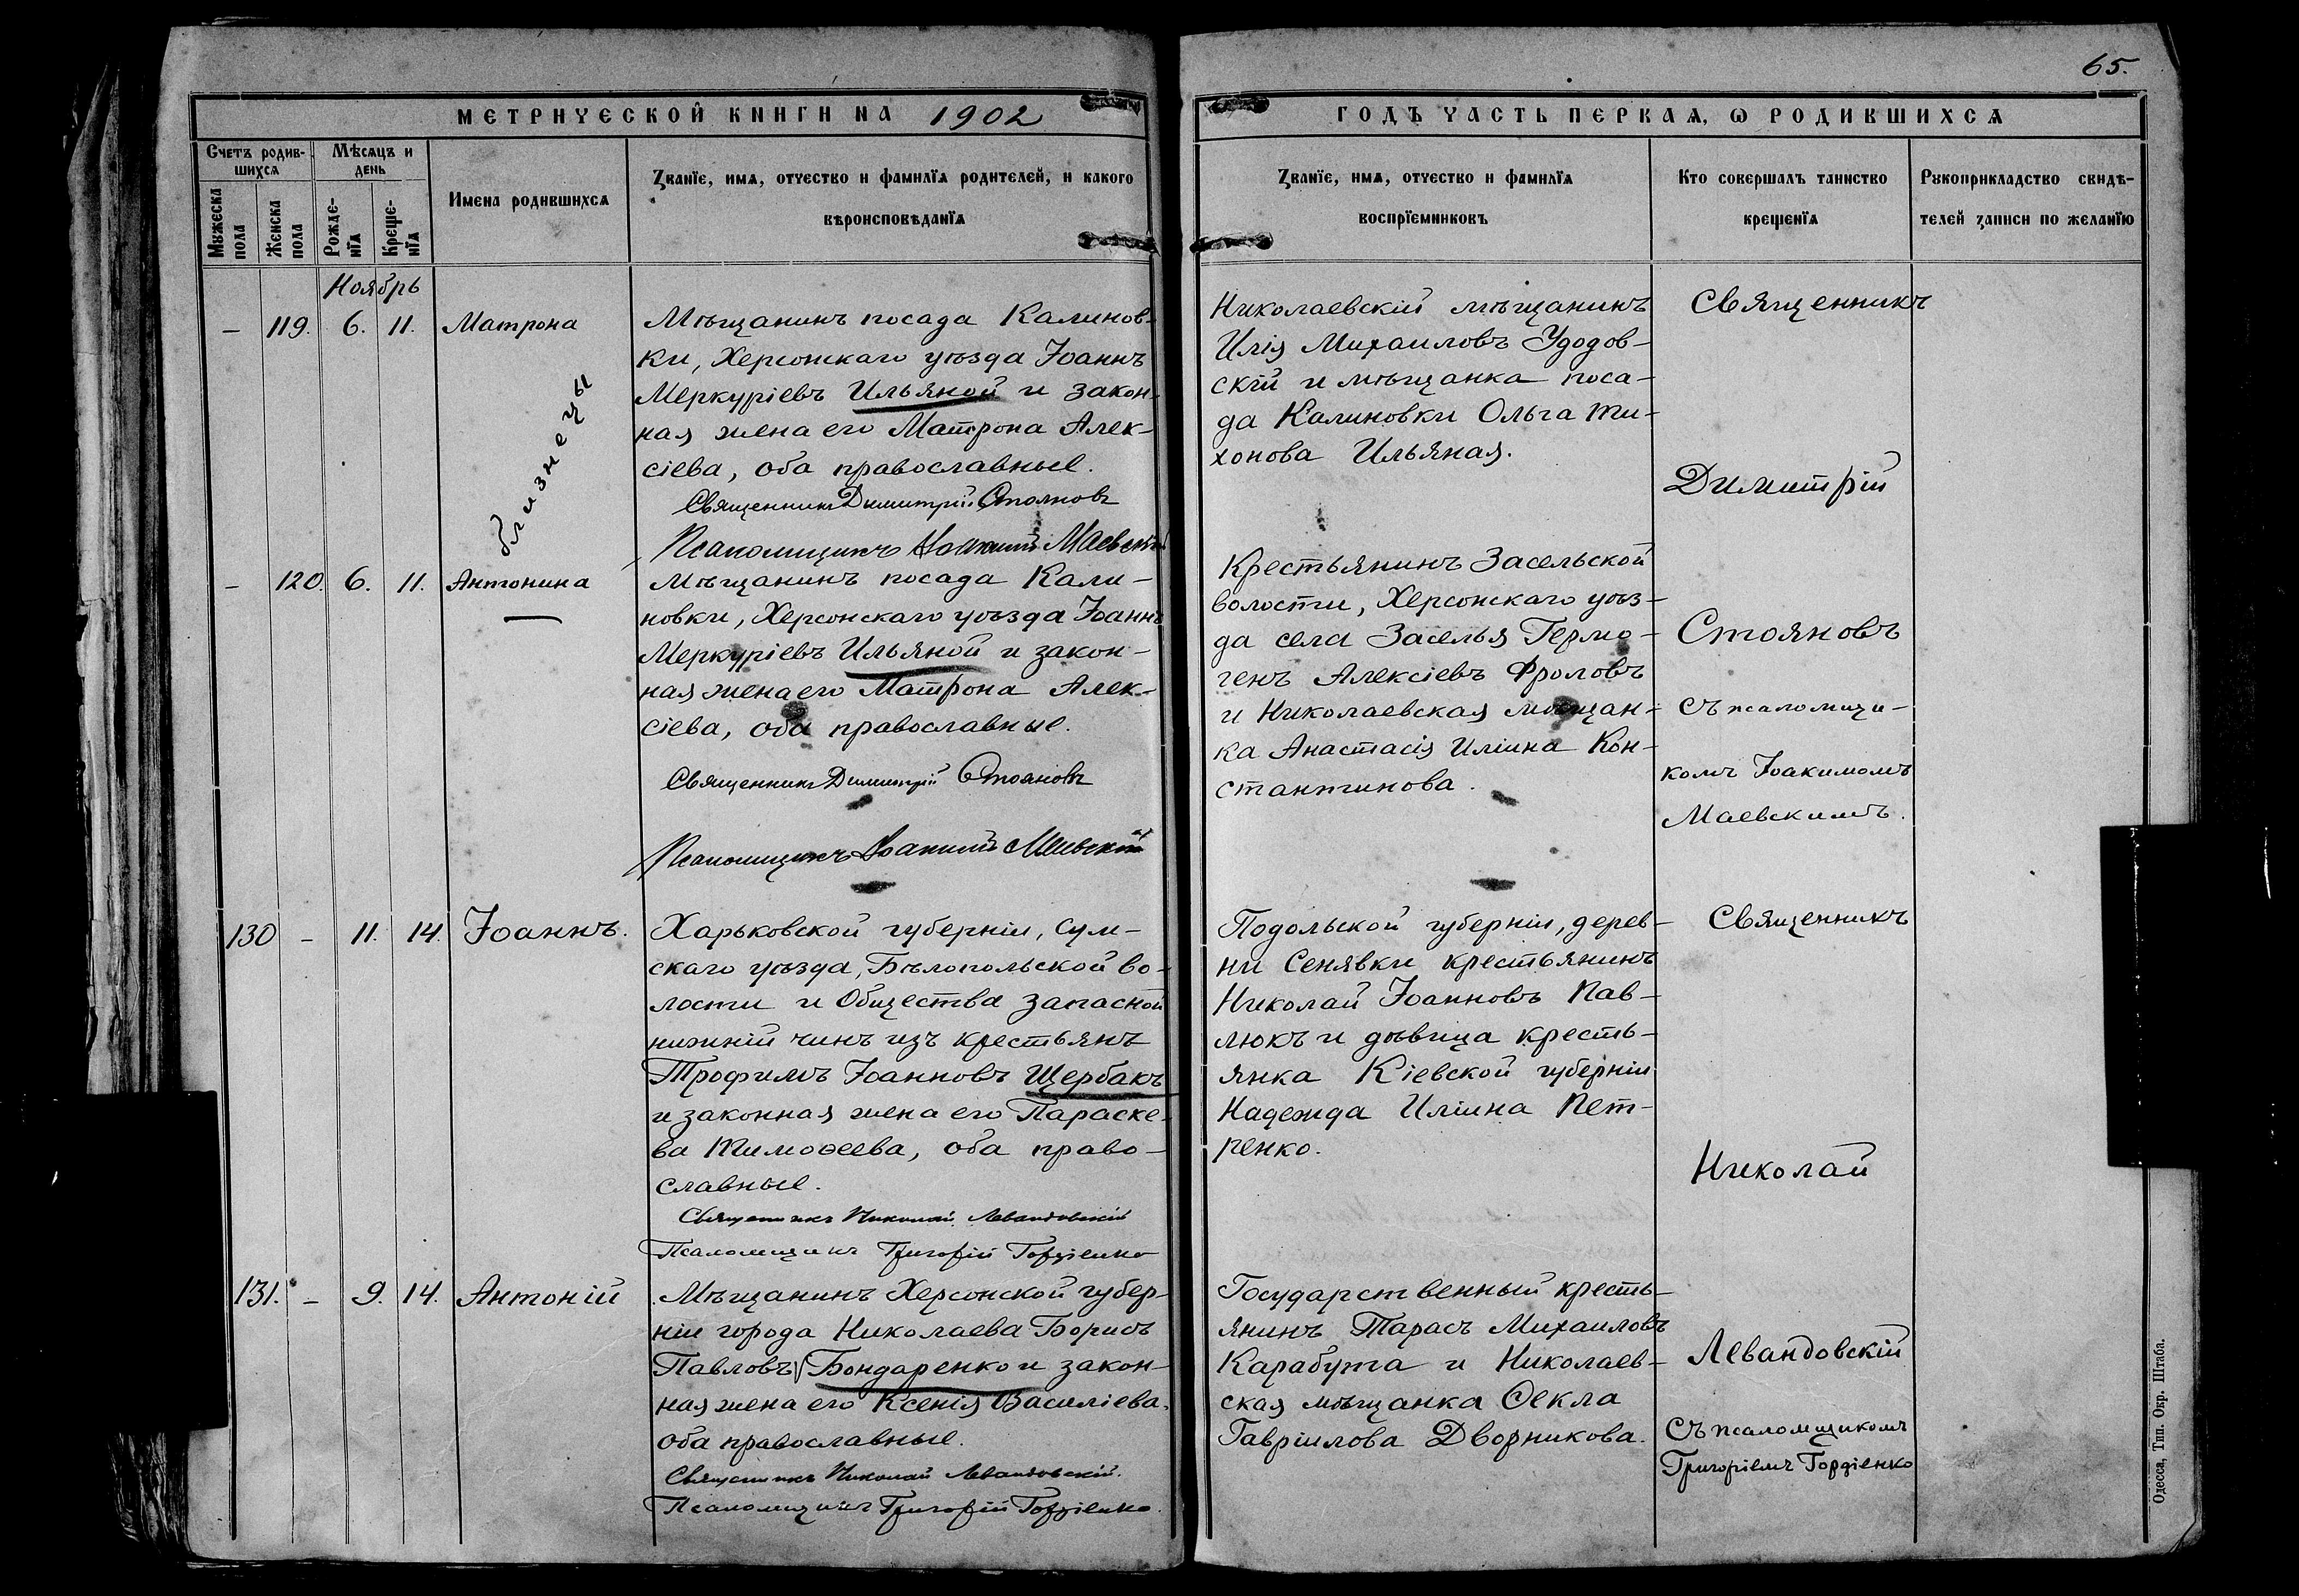 65.
МЕТРИЧЕСКОЙ КНИГИ НА 1902
ГОДЪ ЧАСТЬ ПЕРВАѦ, Ѡ РОДИВШИХСѦ
Счетъ родив-
шихсѧ
Мѣсѧцъ и
день
Мужеска
пола
Женска
пола
Рожде-
нїѧ
Креще-
нїѧ
Имена родившихсѧ
Званїе, имѧ, отчество и фамилїѧ родителей, и какого
вѣроисповѣданїѧ
Званїе, имѧ, отчество и фамилїѧ
воспрїемниковъ
Кто совершалъ таинство
крещенїѧ
Рукоприкладство свидѣ-
телей записи по желанїю
Ноябрь
– 119. 6. 11. Матрона
близнецы
Мѣщанинъ посада Калинов-
ки, Херсонскаго уѣзда Іоаннъ
Меркуріевъ Ильяной и закон-
ная жена его Матрона Алек-
сіева, оба православные.
Священникъ Димитрій Стояновъ
Псаломщикъ Іоакимъ Маевскій
Николаевскій мѣщанинъ
Илія Михаиловъ Удодов-
скій и мѣщанка поса-
да Калиновки Ольга Ти-
хонова Ильяная.
Священникъ
Димитрій
Стояновъ
съ псаломщи-
комъ Іоакимомъ
Маевскимъ.
– 120. 6. 11. Антонина
Мѣщанинъ посада Кали-
новки, Херсонскаго уѣзда Іоаннъ
Меркуріевъ Ильяной и закон-
ная жена его Матрона Алек-
сіева, оба православные.
Священникъ Димитрій Стояновъ
Псаломщикъ Іоакимъ Маевскій
Крестьянинъ Засельской
волости, Херсонскаго уѣз-
да села Заселья Гермо-
генъ Алексіевъ Фроловъ
и Николаевская мѣщан-
ка Анастасія Иліина Кон-
стантинова.
130 – 11. 14. Іоаннъ.
Харьковской губерніи, Сум-
скаго уѣзда, Бѣлопольской во-
лости и Общества запасной
нижній чинъ изъ крестьянъ
Трофимъ Іоанновъ Щербакъ
и законная жена его Параске-
ва Тимоѳеева, оба право-
славные.
Священникъ Николай Левандовскій
Псаломщикъ Григорій Гордіенко
Подольской губерніи, дерев-
ни Сенявки крестьянинъ
Николай Іоанновъ Пав-
люкъ и дѣвица кресть-
янка Кіевской губерніи
Надежда Иліина Пет-
ренко.
Священникъ
Николай
Левандовскій
Съ псаломщикомъ
Григоріемъ Гордіенко
131. – 9. 14. Антоній
Мѣщанинъ Херсонской губер-
ніи города Николаева Борисъ
Павловъ Бондаренко и закон-
ная жена его Ксенія Василіева,
оба православные.
Священникъ Николай Левандовскій.
Псаломщикъ Григорій Гордіенко.
Государственный кресть-
янинъ Тарасъ Михаиловъ
Карабута и Николаев-
ская мѣщанка Ѳекла
Гавріилова Дворникова.
Одесса, Тип. Окр. Штаба.